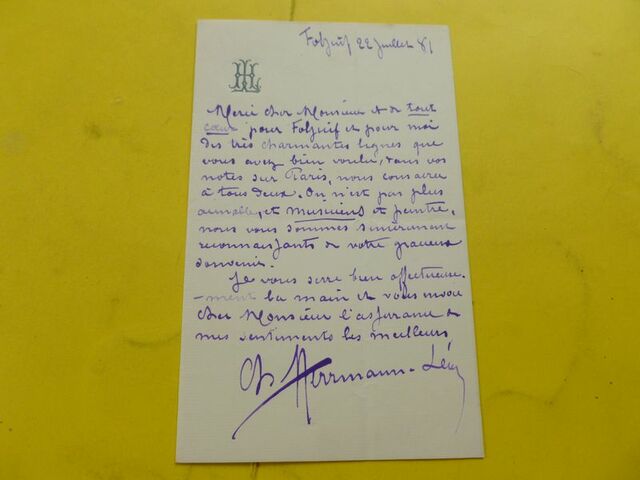 Foljuif 22 juillet 81
HL
Merci cher Monsieur et de tout
cœur pour Foljuif et pour moi
des très charmantes lignes que
vous avez bien voulu, dans vos
notes sur Paris, nous consacrer
à tous deux. On n'est pas plus
aimable, et musiciens et peintre,
nous vous sommes sincèrement
reconnaissants de votre gracieux
souvenir.
Je vous serre bien affectueuse-
-ment la main et vous envoie
cher Monsieur l'assurance de
mes sentiments les meilleurs
Ch Herrmann-Léon